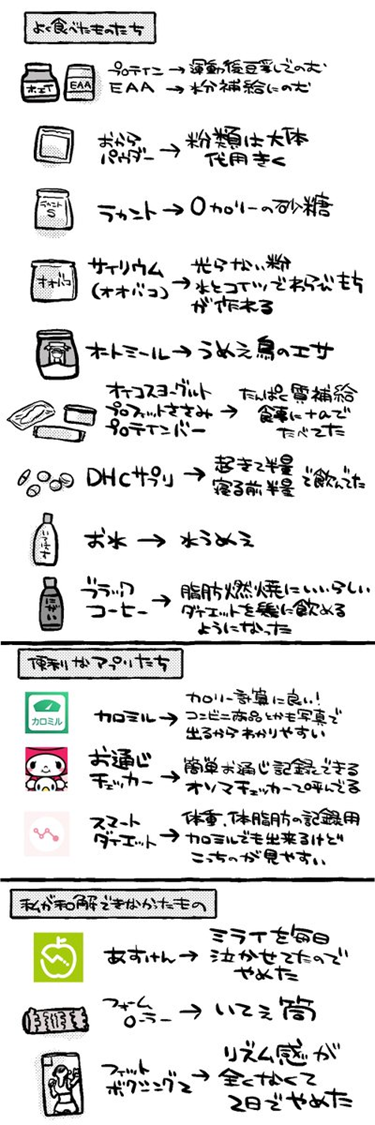 よく食べたものたち
ホエイ
EAA
プロテイン→運動後豆乳でのむ
EAA→水分補給にのむ
おから
パウダー→粉類は大体
代用きく
ラカント
S
ラカント→0カロリーの砂糖
オオバコ
サイリウム
(オオバコ)→光らない粉
水とコイツでわらびもち
が作れる
オートミール→うめえ鳥のエサ
オイコスヨーグルト
プロフィットささみ
プロテインバー→たんぱく質補給
食事に+αで
たべてた
DHCサプリ→起きて半量
寝る前半量で飲んでた
いろはす
お水→水うめえ
にがい
ブラック
コーヒー→脂肪燃焼にいいらしい
ダイエットを機に飲める
ようになった
便利なアプリたち
カロミル
カロミル→カロリー計算に良い!
コンビニ商品とかも写真で
出るからわかりやすい
お通じ
チェッカー→簡単お通じ記録できる
オソマチェッカーって呼んでる
スマート
ダイエット→体重、体脂肪の記録用
カロミルでも出来るけど
こっちのが見やすい
私が和解できなかたもの
あすけん→ミライを毎日
泣かせてたので
やめた
フォーム
ローラー→いてえ筒
フィット
ボクシング2→リズム感が
全くなくて
2日でやめた